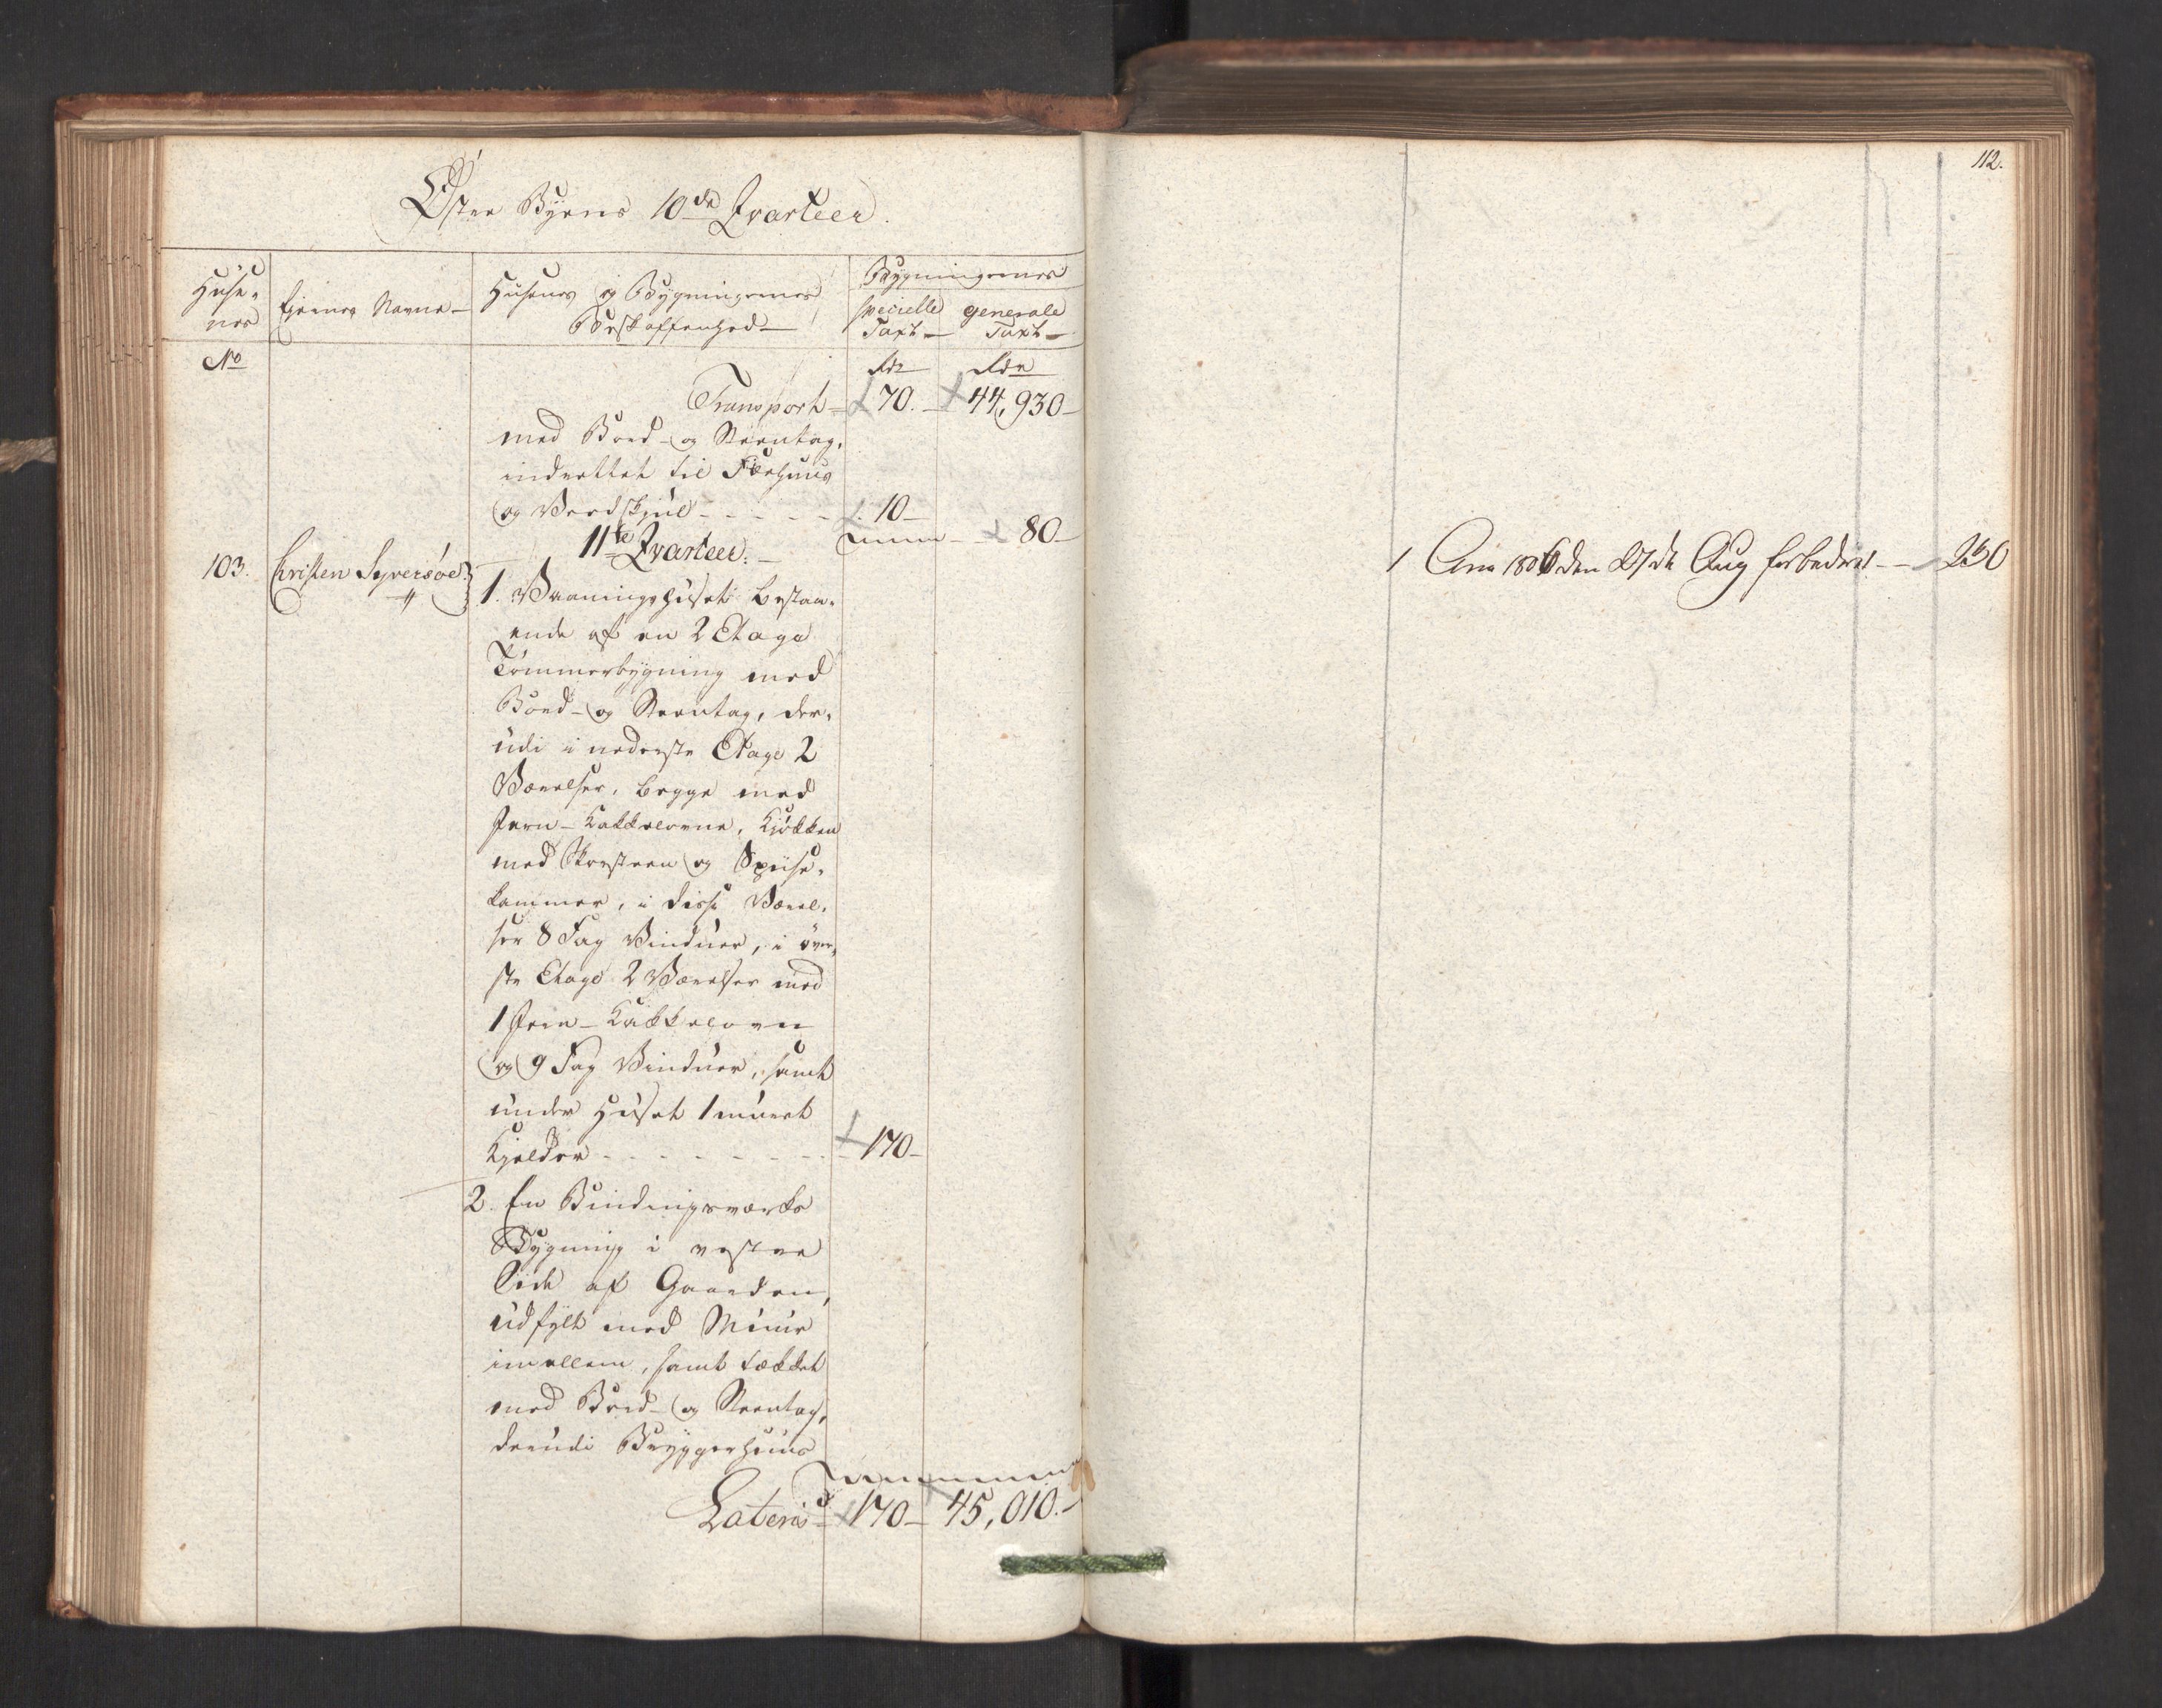 Øster Byens 10de Qvarteer.
Huse-
nes
Ejernes Navne
Husenes og Bygningernes
Beskaffenhed
Bygningernes
specielle
Taxt
generale
Taxt
No
Rdr
Rdr
Transport 70. 44,930
med Bord- og Steentag,
indrettet til Fæehuus
og Veedskjul - - - - - 10
80
11te Qvarteer.
103. Christen Syversøe.
1. Vaaningshuset bestaa-
ende af en 2 Etage
Tømmerbygning med
Bord- og Steentag, der-
udi i nederste Etage 2
Værelser, begge med
Jern-Kakkelovne, Kjøkken
med Skorsteen og Spiise-
kammer, i disse Værel-
ser 8 Fag Vinduer, i øver-
ste Etage 2 Værelser med
1 Jern-Kakkelovn
og 9 Fag Vinduer, samt
under Huset 1 muret
Kjelder - - - - - - - - 170
2. En Bindingsværks
Bygning i vestre
Side af Gaarden,
udfylt med Muur
imellem, samt tækket
med Bord- og Steentag,
derudi Bryggerhuus
Lateris 170 45,010.
112.
1 Ao 1806 den 27de Aug forbedret - - 250